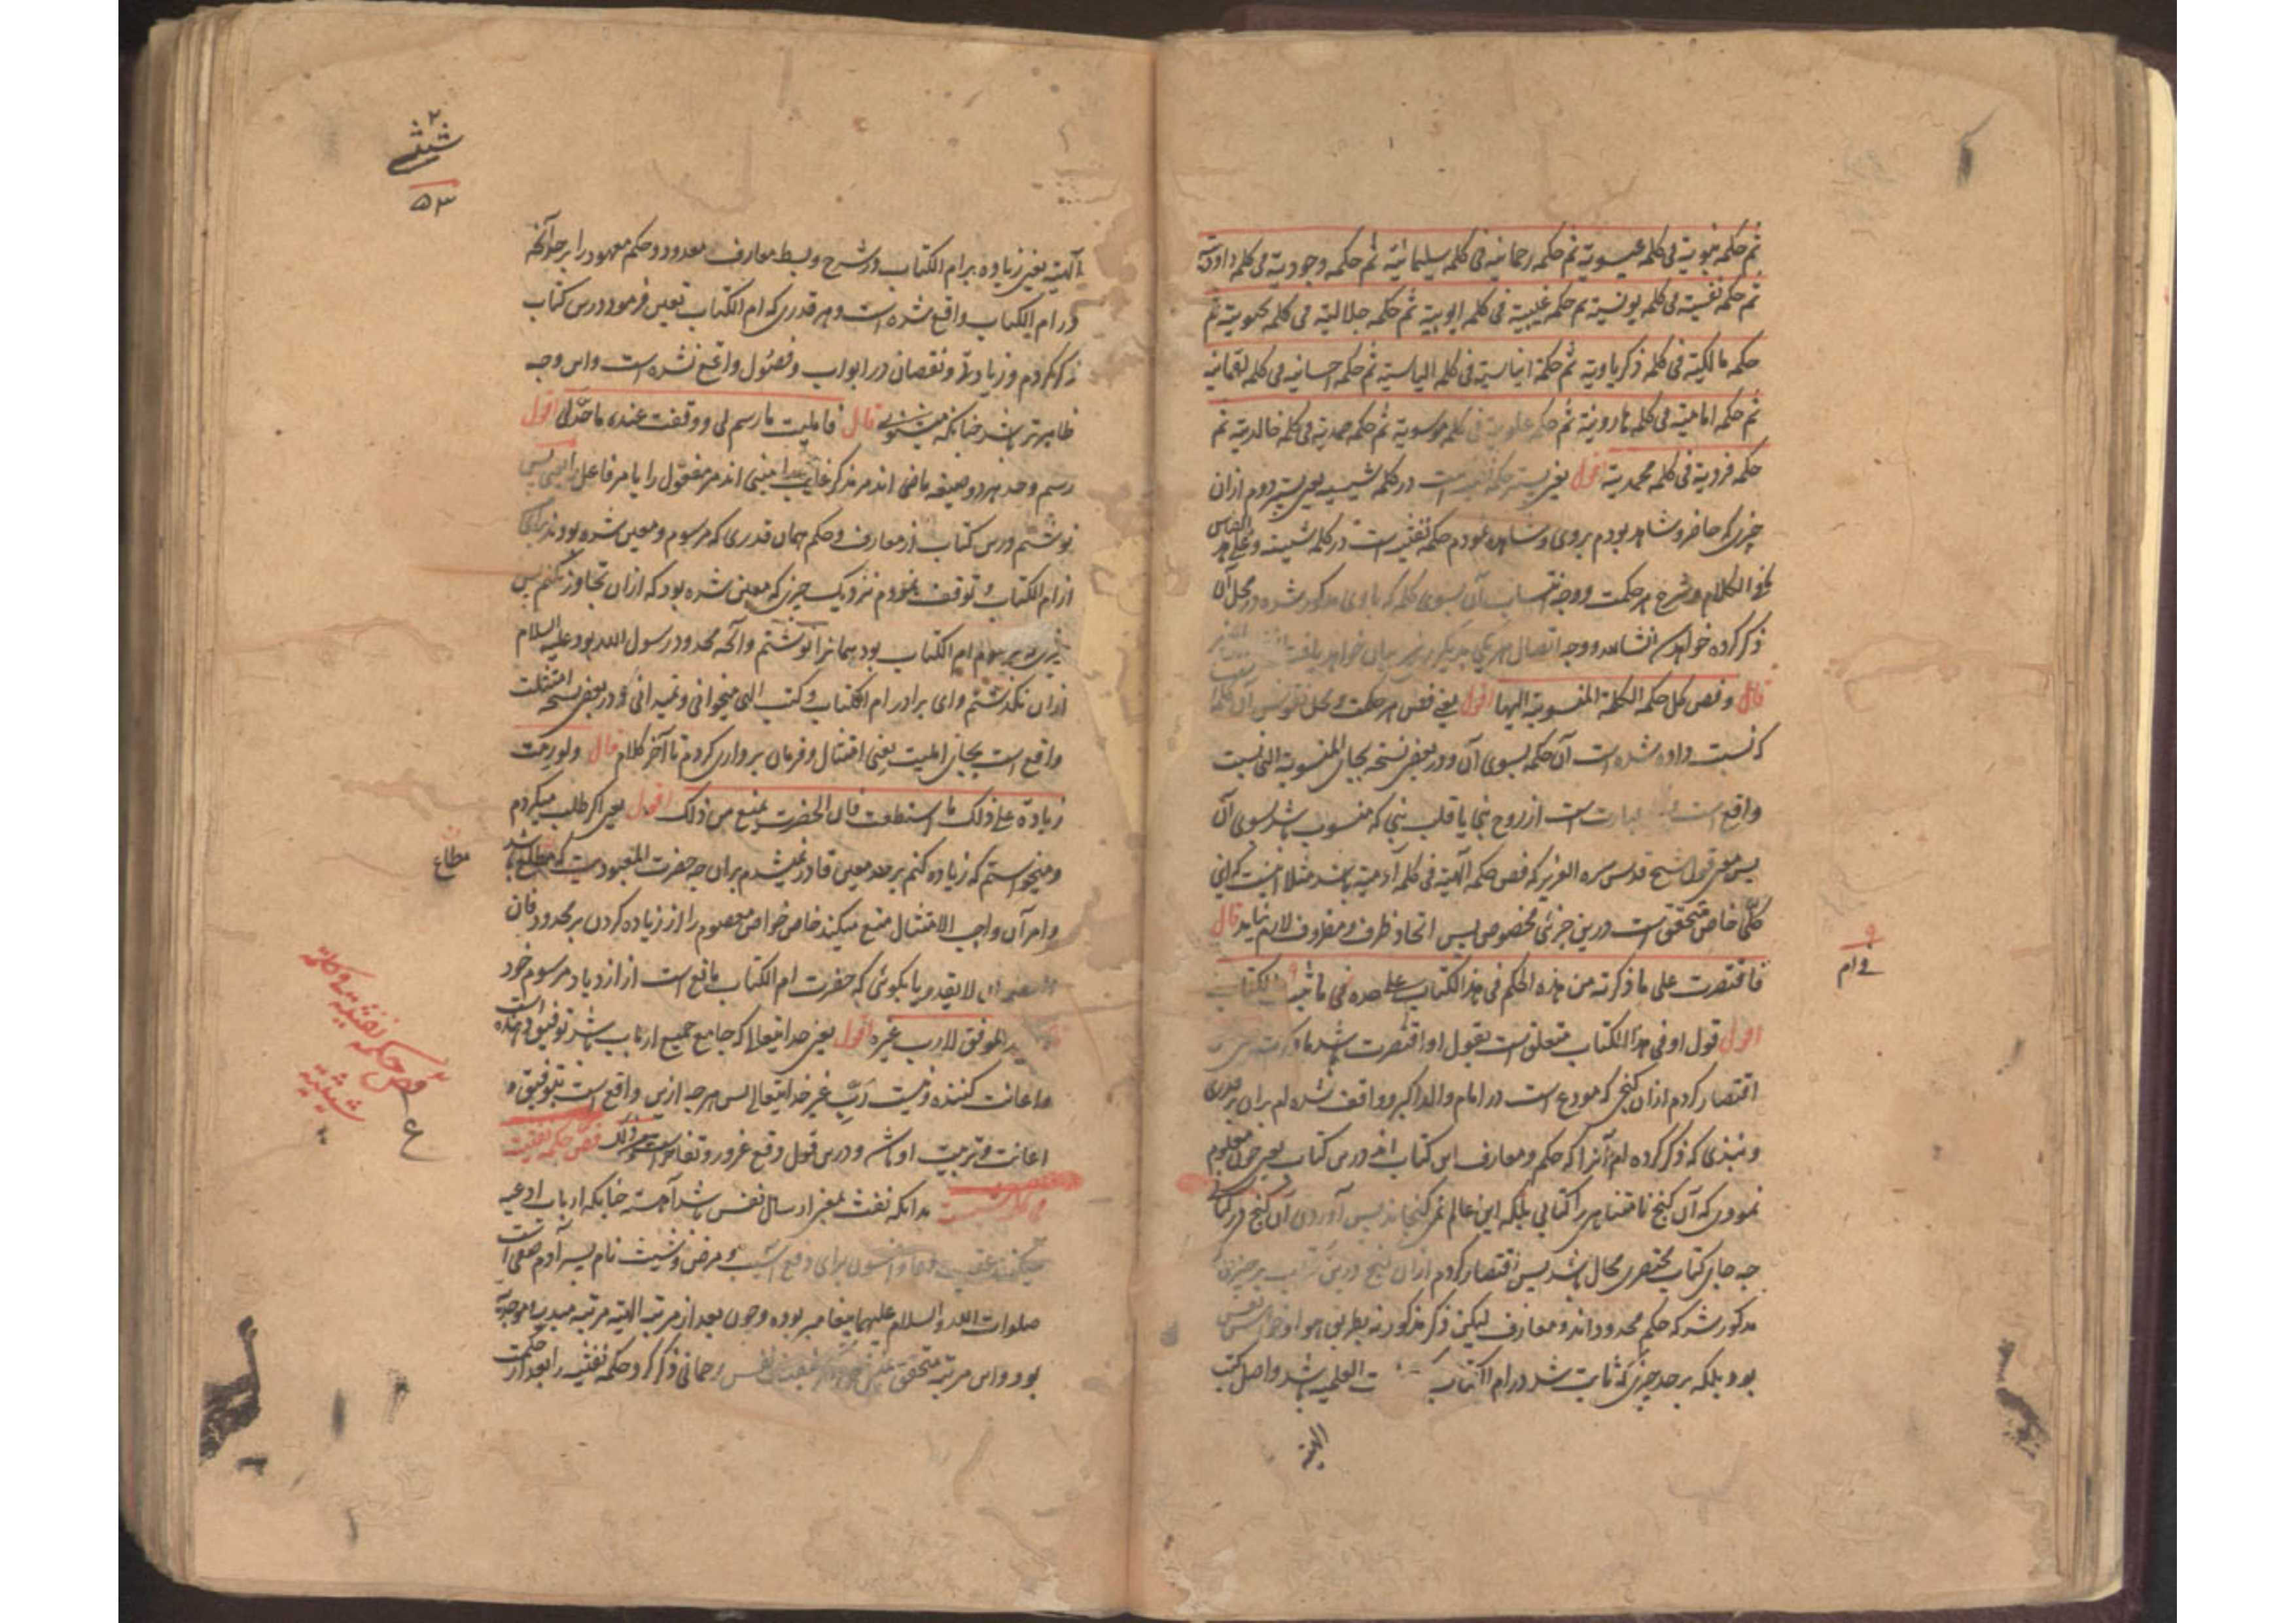 ثم حکمه نبویة فی کلمه عیسویة ثم حکمه رحمانیه فی کلمه سلیمانیة ثم حکمه وجودیة فی کلمه داودیة
ثم حکمه نفسیة فی کلمه یونسیة ثم حکمه غیبیة فی کلمه ایوبیة ثم حکمه جلالیة فی کلمه یحیویة ثم
حکمه مالکیة فی کلمه زکریاویة ثم حکمة ایناسیة فی کلمه الیاسیة ثم حکمه احسانیه فی کلمه لقمانیة
ثم حکمه امامیة فی کلمه هارونیة ثم حکمه علویة فی کلمه موسویة ثم حکمه صمدیة فی کلمه خالدیة ثم
حکمه فردیة فی کلمه محمدیة اقول یعنی پستر حکمه نفثیه است در کلمه شیثیه یعنی پستر دوم ازان
چیزی که حاضر و شاهد بودم بروی و مشاهده نمودم حکمه نفثیه است در کلمه شیثیه و علی هذا القیاس
الکلام و شرح هر حکمت و وجه انتساب آن بسوی کلمه که باوی مذکور شده در محل آن
ذکر کرده خواهد شد انشاءالله و وجه اتصال هر یکی بدیگری نیز بیان خواهد یافت
قال و فص کل حکمه الکلمة المنسوبة الیها اقول یعنی فص هر حکمت و محل نقوش آن کلمه
که نسبت داده شده است آن حکمه بسوی آن و در بعضی نسخه بجای المنسوبة التی نسبت
واقع است و عبارت است از روح نبی یا قلب نبی که منسوب باشد بسوی آن
پس معنی قول شیخ قدس سره العزیز که فص حکمه آلهیة فی کلمه آدمیة باشد مثلا اینست که این
کلی خاص متحقق است درین جزئی مخصوص پس اتحاد ظرف و مظروف لازم نیاید قال
فاقتصرت علی ما ذکرته من هذه الحکم فی هذا الکتاب علی حد ما ثبت فی ام الکتاب
فی ام
اقول قول او فی هذا الکتاب متعلق است بقول او اقتصرت باشد یا ذکرته یعنی
اقتصار کردم ازان گنجی که مودع است در امام والد اکبر و واقف شده ام بران بر قدری
و نبذی که ذکر کرده ام آنرا که حکم و معارف این کتاب اند درین کتاب یعنی چون معلوم
نمودی که آن گنج نامتناهی را کتابی بلکه این عالم نمی گنجاند پس آوردن آن گنج در کتاب
چه جای کتاب مختصر محال باشد پس اقتصار کردم ازان گنج درین کتاب بر چیزی که
مذکور شد که حکم محدود اند و معارف لیکن ذکر مذکور نه بطریق هوا و خواهش نفس
بود بلکه بر حد چیزی که ثابت شد در ام الکتاب العلمیه باشد و اصل کتب
الهیه
شیثی
۵۳
الهیة یعنی زیاده بر ام الکتاب در شرح و بسط معارف معدود و حکم معهود را بر آنچه
در ام الکتاب واقع شده است و هر قدری که ام الکتاب تعین فرمود درین کتاب
ذکر کردم و زیادت و نقصان در ابواب و فصول واقع نشده است و این وجه
ظاهرتر باشد چنانکه میشنوی قال فامتثلت ما رسم لی و وقفت عند ما حد لی اقول
رسم و حد هر دو صیغه ماضی اند مر مذکر غایب را مبنی اند مر مفعول را یا مر فاعل را یعنی پس
نوشتم درین کتاب از معارف و حکم همان قدری که مرسوم و معین شده بود مرا
از ام الکتاب و توقف نمودم نزدیک چیزی که معین شده بود که ازان تجاوز نکنم پس
مرسوم ام الکتاب بود همانرا نوشتم و آنچه محدود رسول الله بود علیه السلام
ازان نگذشتم و ای برادر ام الکتاب و کتب الهی میخوانی و نمیدانی و در بعضی نسخه امتثلت
واقع است بجای املیت یعنی امتثال و فرمان برداری کردم تا آخر کلام قال و لو رمت
زیادة علی ذلک ما استطعت فان الحضرت یمنع من ذلک اقول یعنی اگر طلب میکردم
و میخواستم که زیاده کنم بر حد معین قادر نمیشدم بران چه حضرت المعبودیت که مطاع باشد
مطاع
و امر آن واجب الامتثال منع میکند خاص خواص معصوم را از زیاده کردن بر محدود فان
المعصوم لا یقدم یا بگوئی که حضرت ام الکتاب مانع است از ازدیاد مرسوم خود
الموفق لا رب غیره اقول یعنی خدایتعالی که جامع جمیع ارباب باشد توفیق دهنده است
و اعانت کننده و نیست رب غیر خدایتعالی پس هر چه ازین واقع است بتوفیق و
اعانت و تربیت او باشد و درین قول دفع غرور و تفاخر است فص حکمه نفثیة
فی کلمة شیثیة بدانکه نفث بمعنی ارسال نفس باشد آهسته چنانکه ارباب ادعیه
میکنند عقیب دعا و افسون برای دفع آسیب و مرض و شیث نام پسر آدم صفی است
صلوات الله والسلام علیهما پیغامبر بوده و چون بعد از مرتبه الهیة مرتبه مبدیه موجدیة
بود و این مرتبه متحقق نمیشود نفس رحمانی ذکر کرد حکمه نفثیه را بعد از حکمت
فص حکمه نفثیه فی کلمه
شیثیة